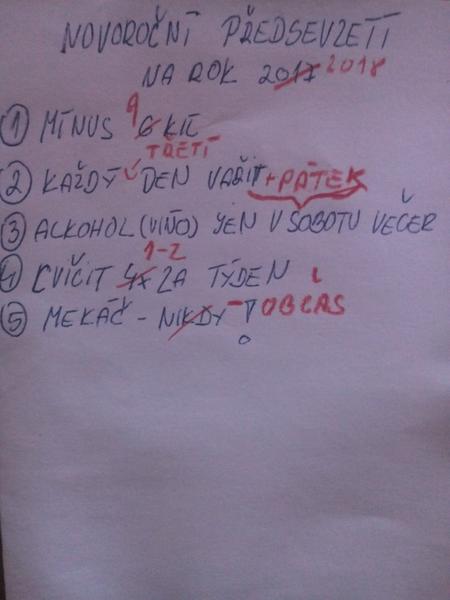 NOVOROČNÍ PŘEDSEVZETÍ
NA ROK 2017 2018
① MÍNUS 6 9 KIL
② KAŽDÝ TŘETÍ DEN VAŘIT + PÁTEK
③ ALKOHOL (VÍNO) JEN V SOBOTU VEČER
④ CVIČIT 4x 1-2 ZA TÝDEN
⑤ MEKÁČ - NIKDY - ! OBČAS